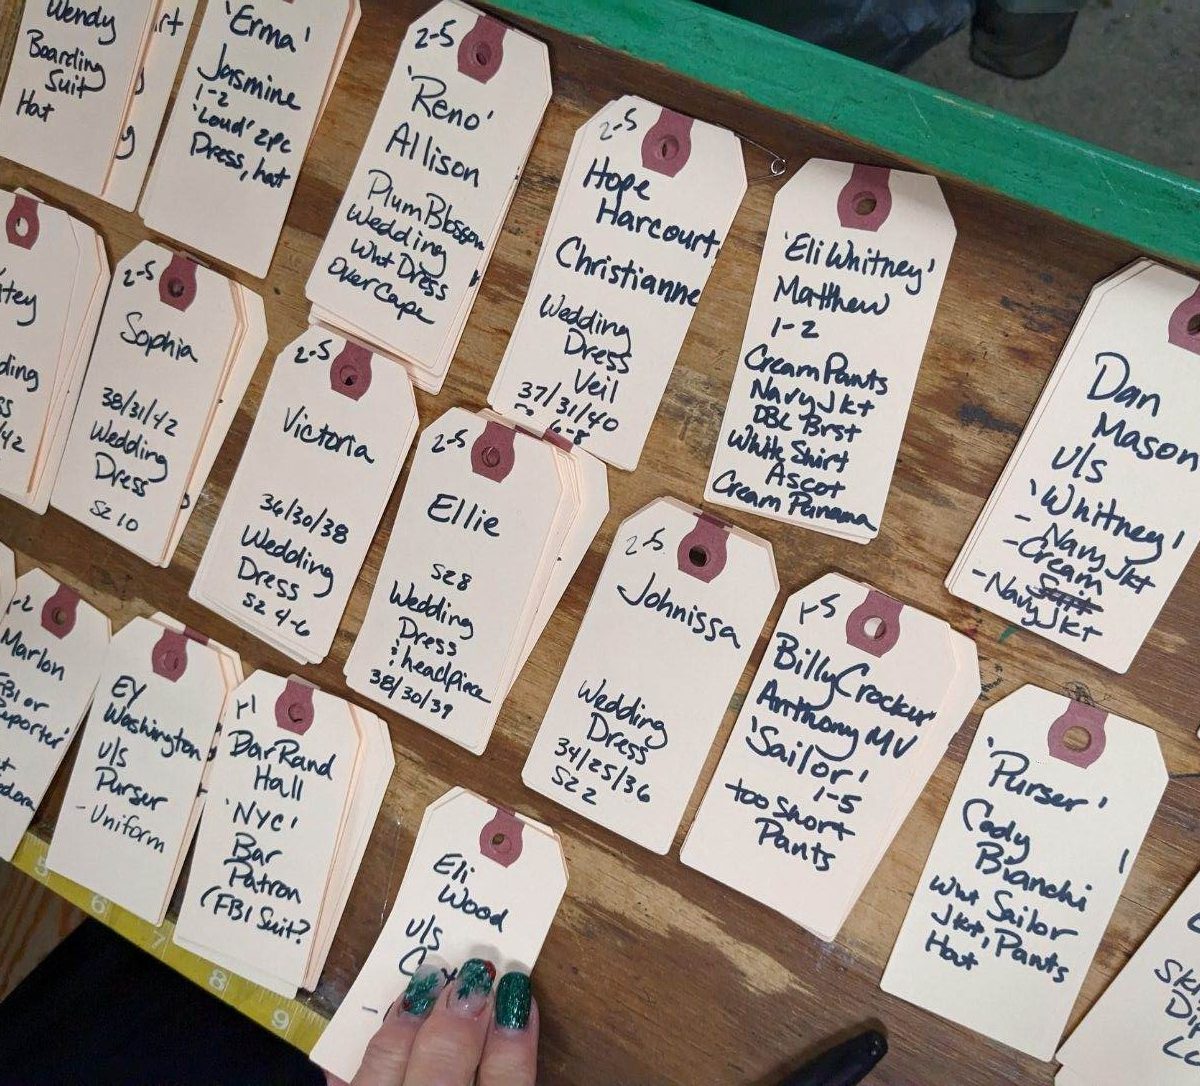 Wendy
Boarding
Suit
Hat
'Erma'
Jasmine
1-2
'Loud' 2pc
Dress, hat
2-5
'Reno'
Allison
Plum Blossom
Wedding
Wht Dress
Over Cape
2-5
Hope
Harcourt
Christianne
Wedding
Dress
Veil
37/31/40
6-8
'Eli Whitney'
Matthew
1-2
Cream Pants
Navy Jkt
DBL Brst
White Shirt
Ascot
Cream Panama
Dan
Mason
u/s
'Whitney'
- Navy Jkt
- Cream
- Navy Jkt
2-5
Sophia
38/31/42
Wedding
Dress
SZ 10
2-5
Victoria
36/30/38
Wedding
Dress
SZ 4-6
2-5
Ellie
SZ 8
Wedding
Dress
& headpiece
38/30/39
2-5
Johnissa
Wedding
Dress
34/25/36
SZ 2
1-5
Billy Crocker
Anthony MV
'Sailor'
1-5
too short
Pants
'Purser'
Cody
Bianchi
Wht Sailor
Jkt, Pants
Hat
Marlon
FBI or
EY
Washington
u/s
Purser
- Uniform
1-1
DarRand
Hall
'NYC'
Bar
Patron
(FBI Suit?
Eli
Wood
u/s
5
6
7
8
9